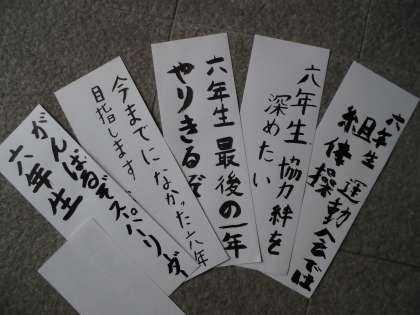 六年生 運動会では
組体操
六年生 協力絆を
深めたい
六年生 最後の一年
やりきるぞ
今までになかった六年
目指します、
がんばるぞスーパーリーダー
六年生